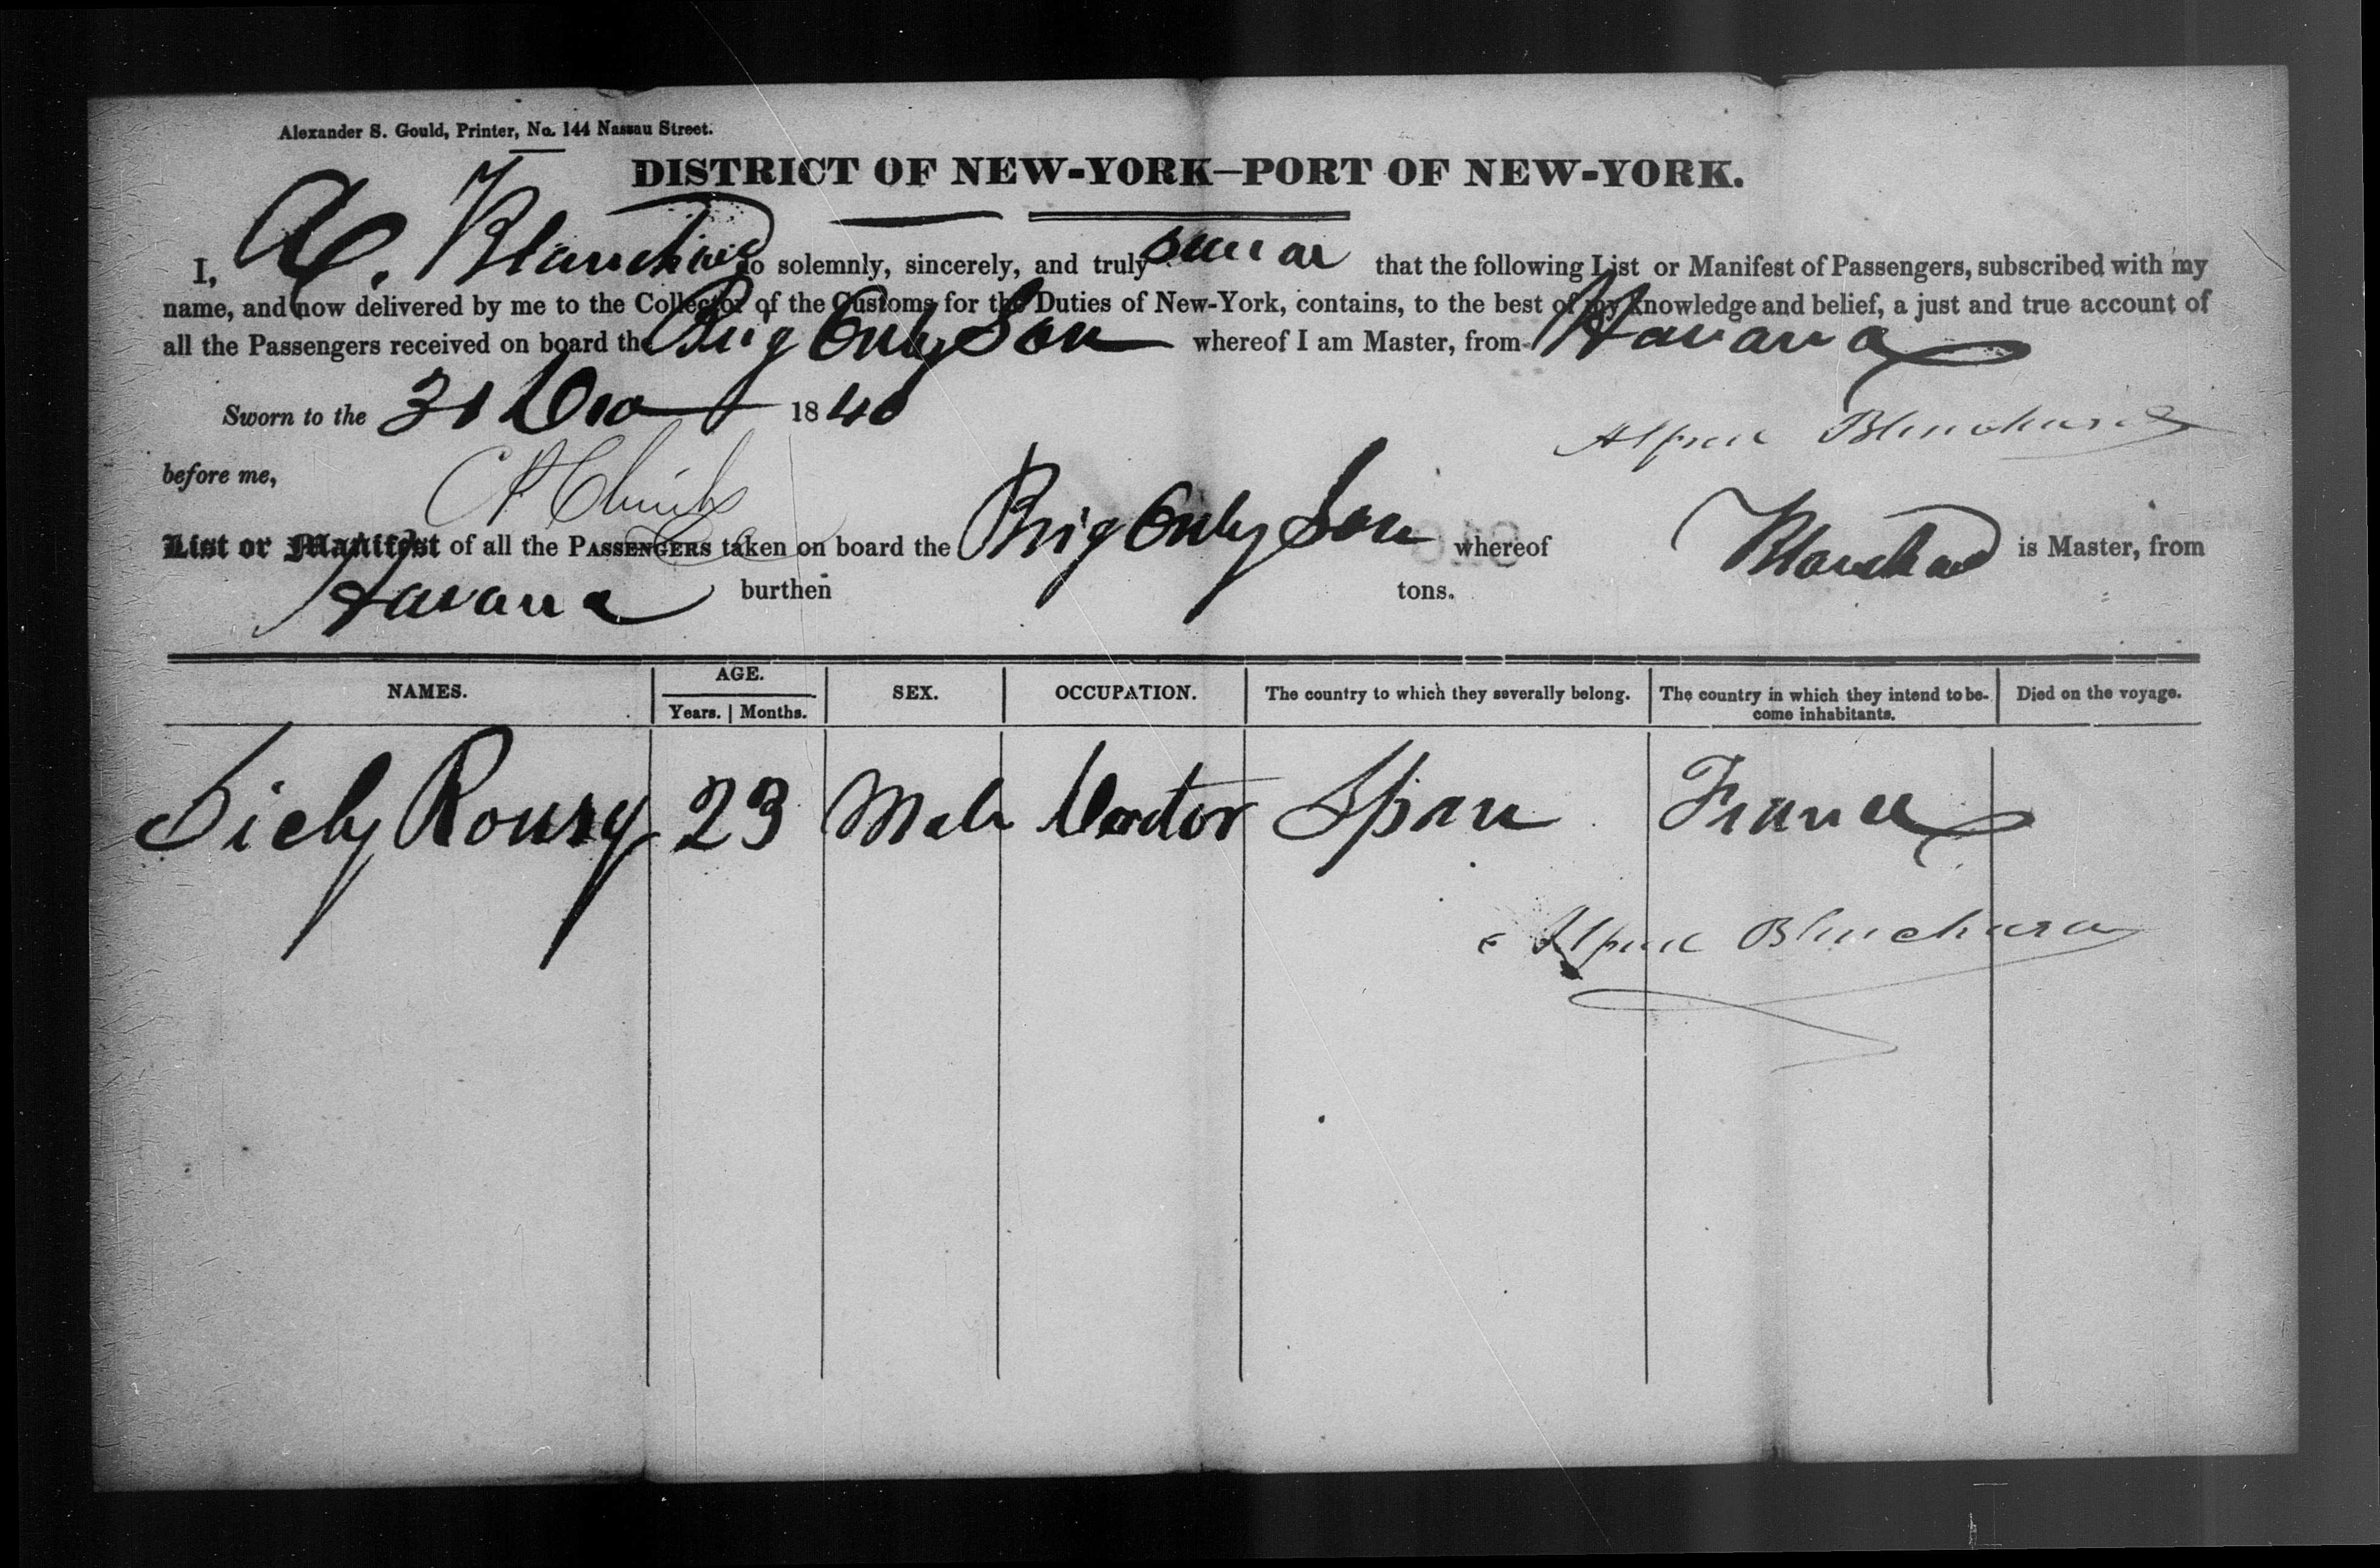 Alexander S. Gould, Printer, No. 144 Nassau Street.
DISTRICT OF NEW-YORK—PORT OF NEW-YORK.
I, A. Blanchard do solemnly, sincerely, and truly swear that the following List or Manifest of Passengers, subscribed with my
name, and now delivered by me to the Collector of the Customs for the Duties of New-York, contains, to the best of my knowledge and belief, a just and true account of
all the Passengers received on board the Brig Only Son whereof I am Master, from Havana
Sworn to the 31 Dec 1840
Alfred Blanchard
before me,
List or Manifest of all the PASSENGERS taken on board the Brig Only Son whereof Blanchard is Master, from
Havana burthen tons.
NAMES. AGE. Years. Months. SEX. OCCUPATION. The country to which they severally belong. The country in which they intend to become inhabitants. Died on the voyage.
23 Male Doctor Spain France
Alfred Blanchard